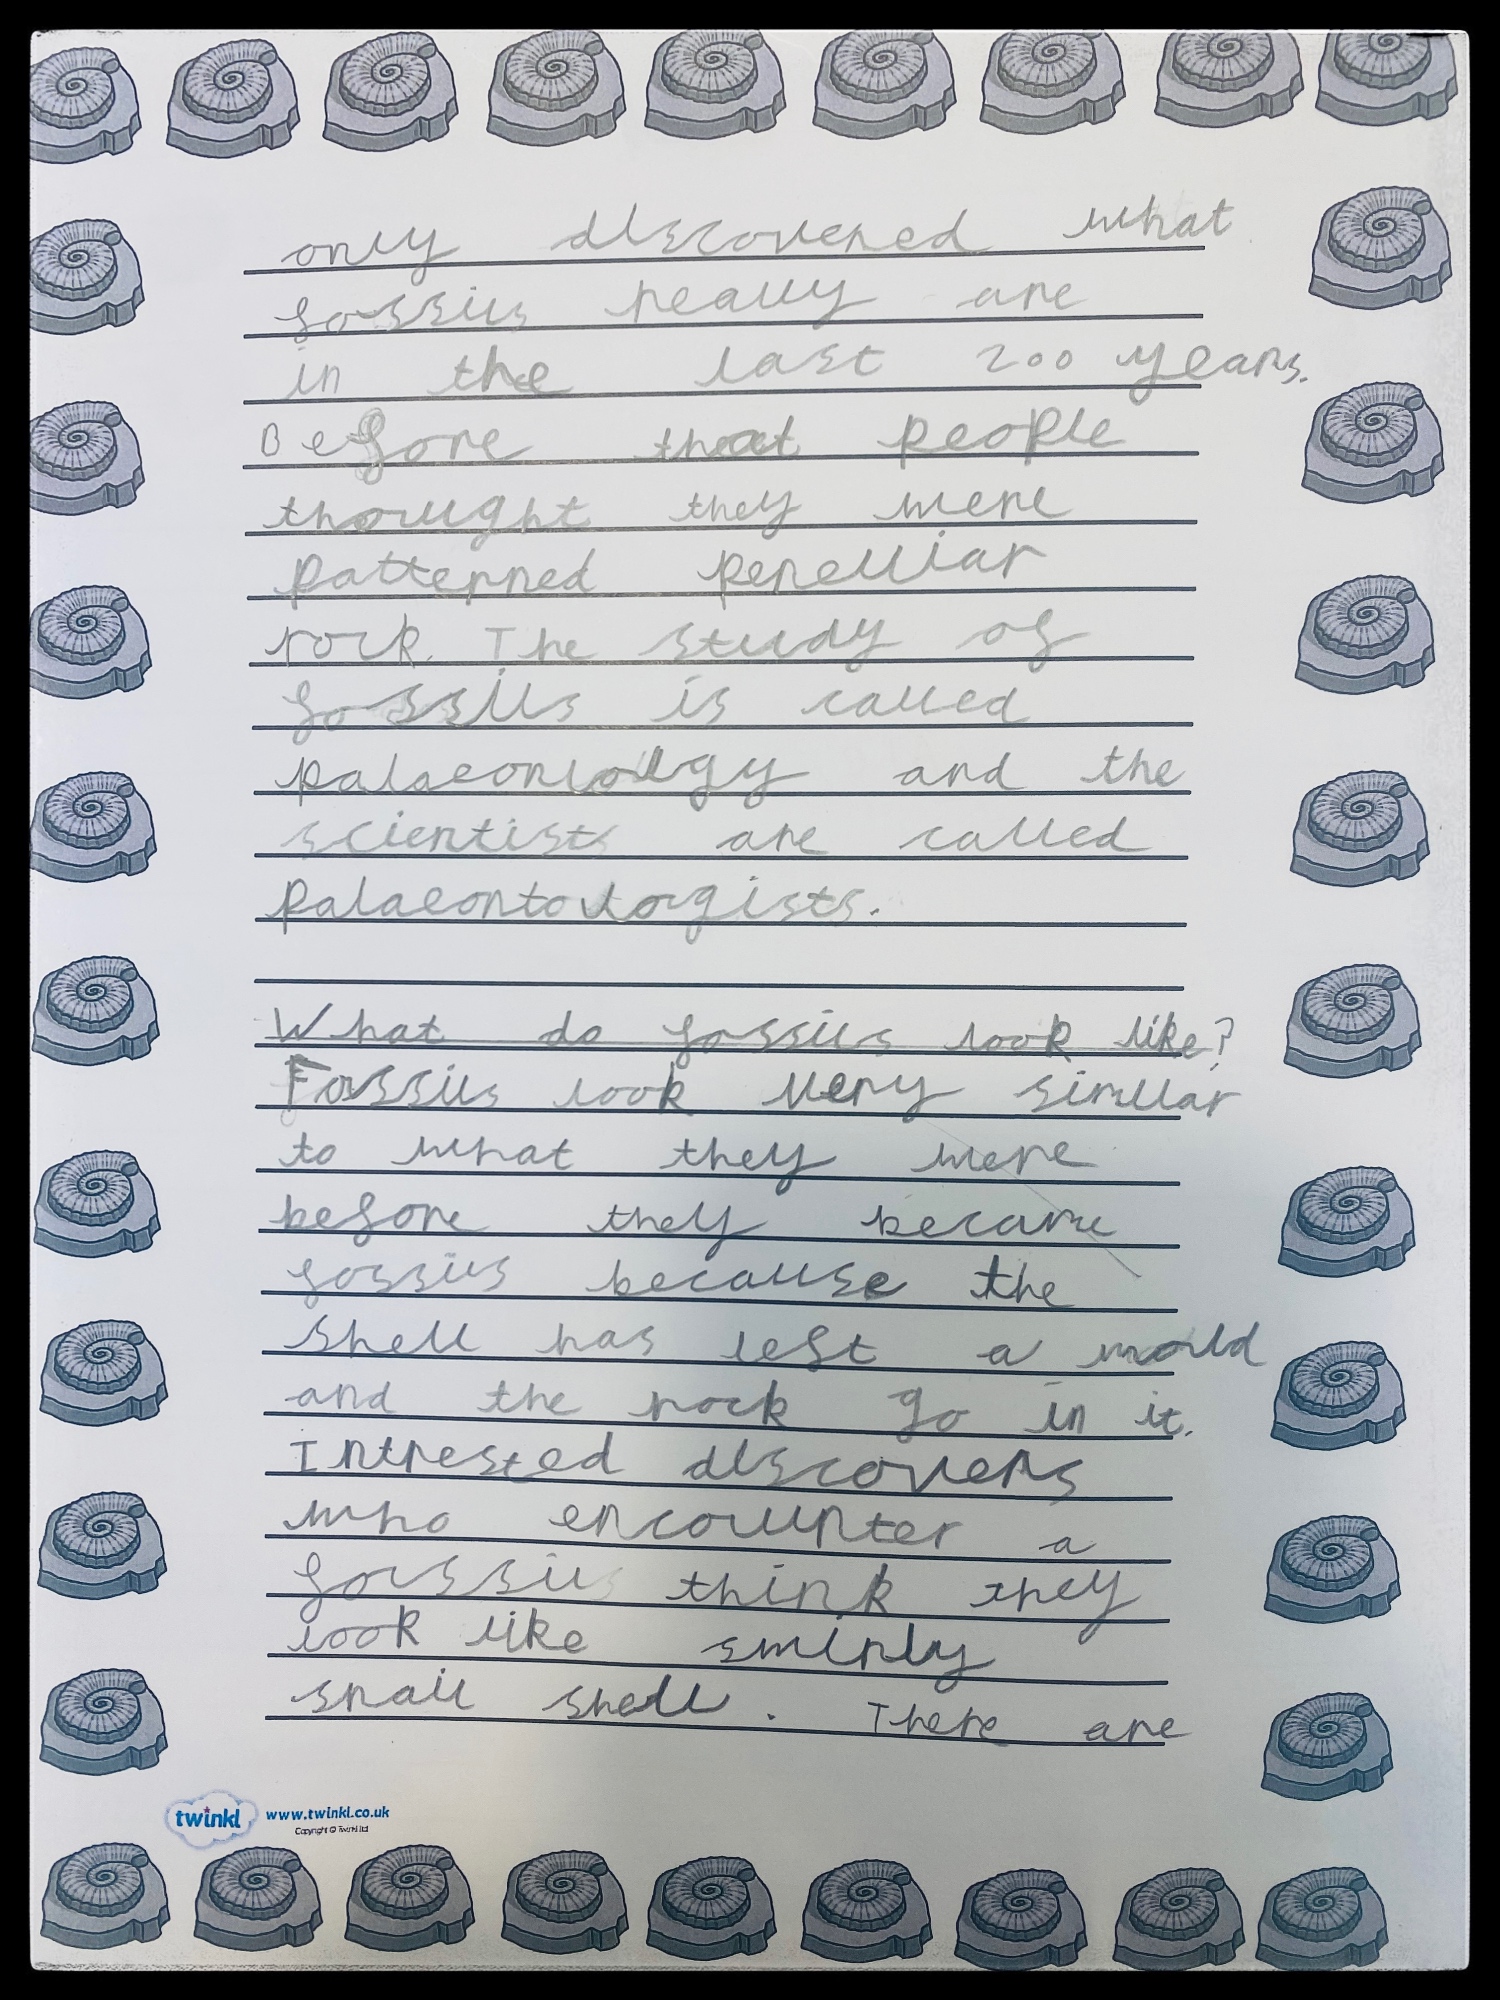 only discovered what
fossils really are
in the last 200 years.
Before that people
thought they were
patterned penelliar
rock. The study of
fossils is called
palaeontolgy and the
scientists are called
palaeontologists.
What do fossils look like?
Fossils look very similar
to what they were
before they became
fossils because the
shell has left a mould
and the rock go in it.
Intrested discovers
who encounter a
fossils think they
look like swirly
snail shell. There are
twinkl www.twinkl.co.uk
Copyright © Twinkl Ltd